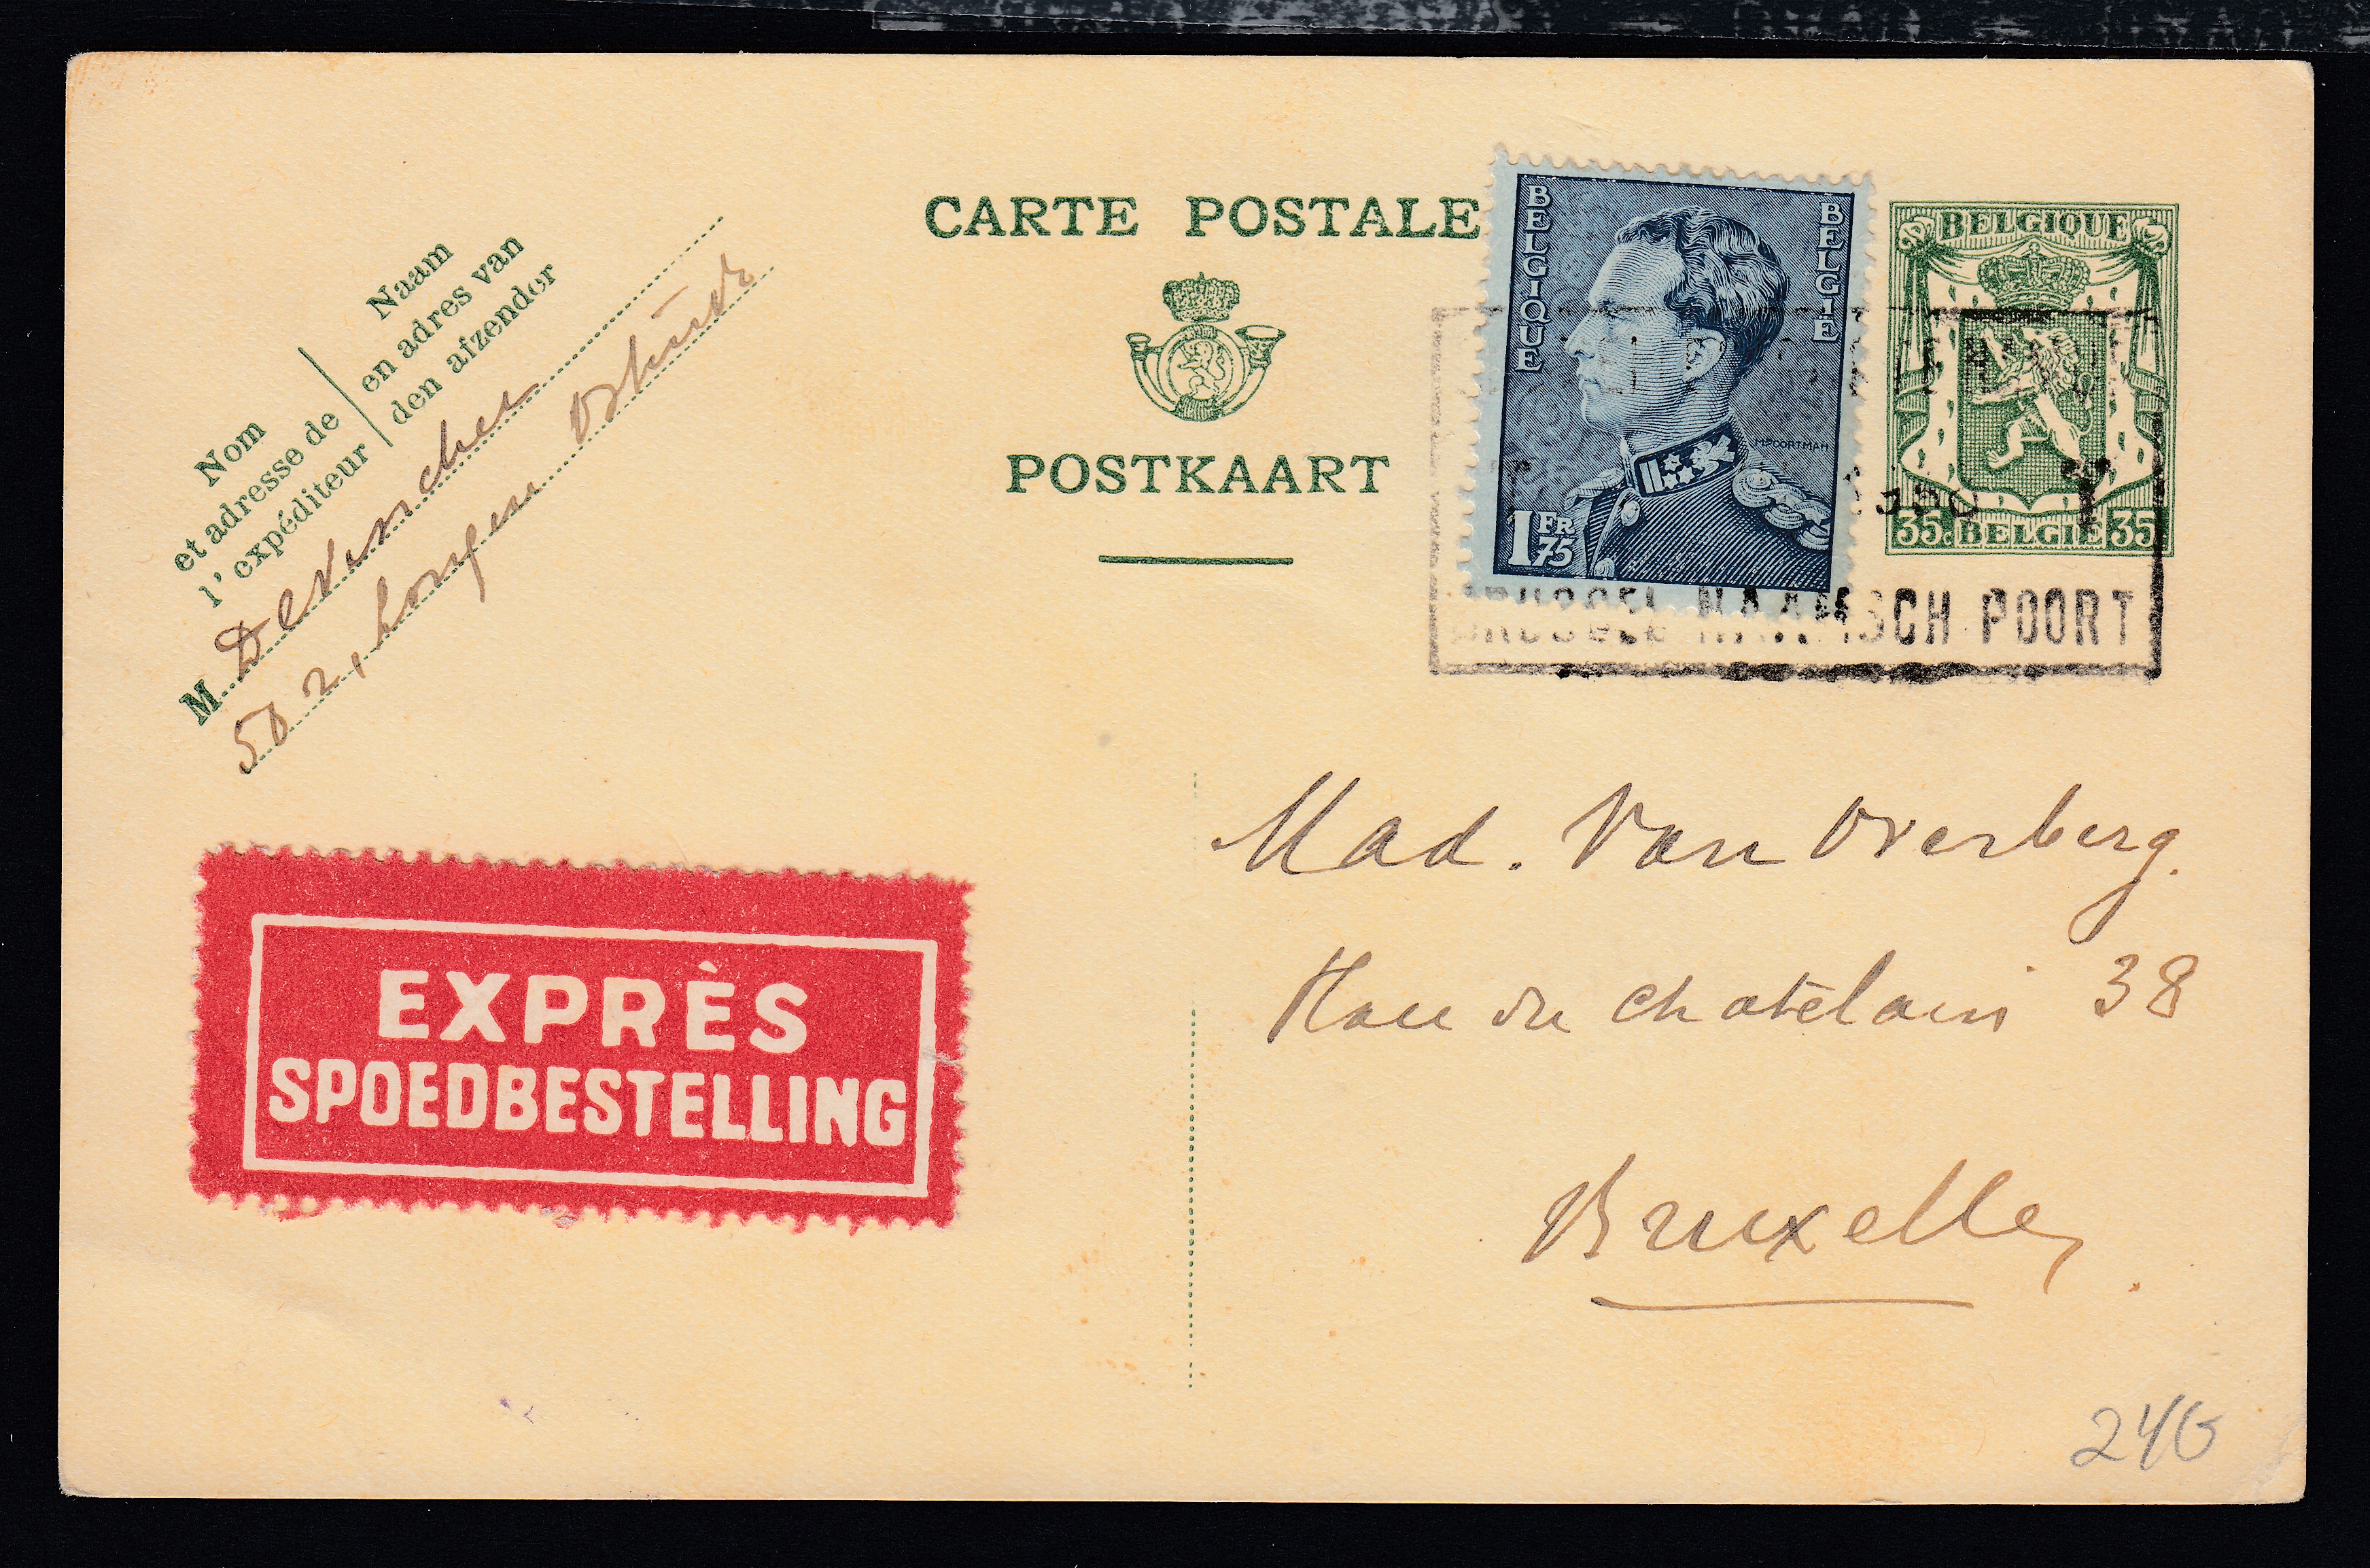 CARTE POSTALE
POSTKAART
Nom
et adresse de
l'expéditeur
Naam
en adres van
den afzender
M.
50 2,
BELGIQUE
BELGIE
M.POORTMAN
1 FR 75
BELGIQUE
35c BELGIE 35
BRUSSEL NAAMSCH POORT
Mad. Van Overberg.
du chatelain 38
Bruxelles
EXPRÈS
SPOEDBESTELLING
240